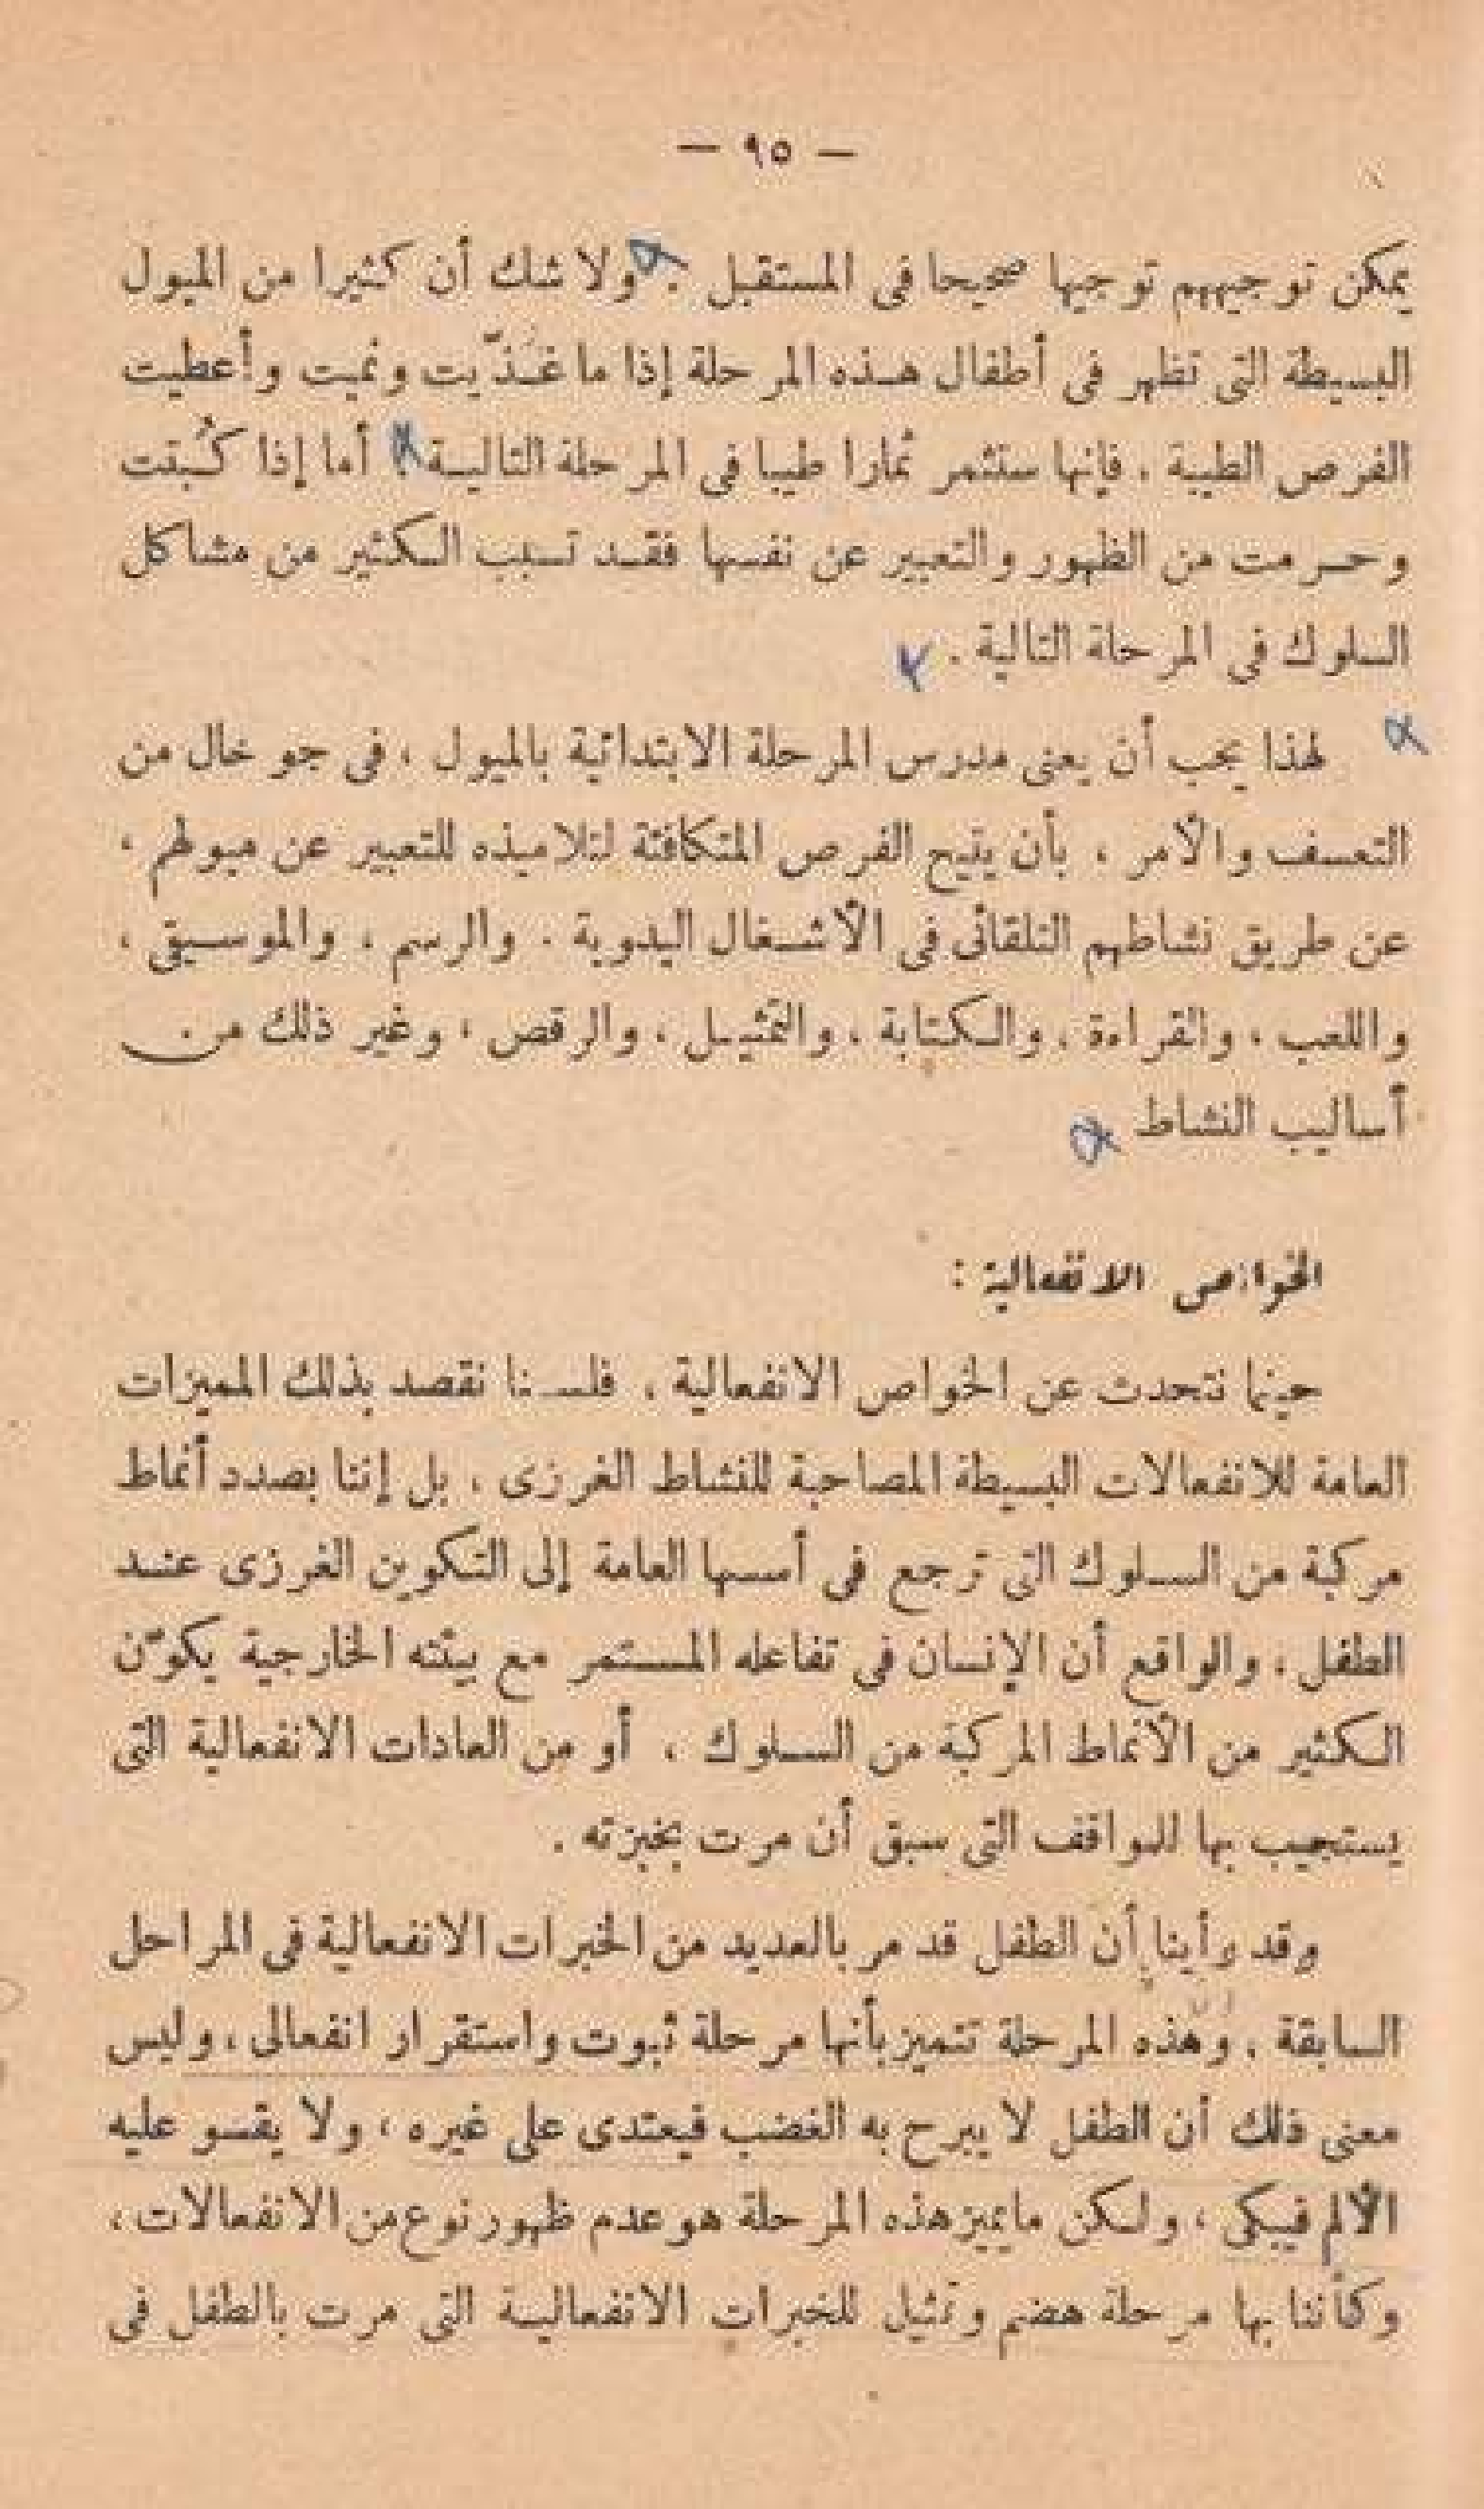 — ٩٥ —
يمكن توجيههم توجيها صحيحا فى المستقبل . ولا شك أن كثيرا من الميول
البسيطة التى تظهر فى أطفال هذه المرحلة إذا ما غذّيت ونميت وأعطيت
الفرص الطيبة ، فإنها ستثمر ثمارا طيبا فى المرحلة التالية ، أما إذا كُبتت
وحرمت من الظهور والتعبير عن نفسها فقد تسبب الكثير من مشاكل
السلوك فى المرحلة التالية .
لهذا يجب أن يعنى مدرس المرحلة الابتدائية بالميول ، فى جو خال من
التعسف والأمر ، بأن يتيح الفرص المتكافئة لتلاميذه للتعبير عن ميولهم ،
عن طريق نشاطهم التلقائى فى الأشغال اليدوية . والرسم ، والموسيقى ،
واللعب ، والقراءة ، والكتابة ، والتمثيل ، والرقص ، وغير ذلك من
أساليب النشاط
الخواص الانفعالية :
حينما نتحدث عن الخواص الانفعالية ، فلسنا نقصد بذلك المميزات
العامة للانفعالات البسيطة المصاحبة للنشاط الغرزى ، بل إننا بصدد أنماط
مركبة من السلوك التى ترجع فى أسسها العامة إلى التكوين الغرزى عند
الطفل ، والواقع أن الإنسان فى تفاعله المستمر مع بيئته الخارجية يكوّن
الكثير من الأنماط المركبة من السلوك ، أو من العادات الانفعالية التى
يستجيب بها للمواقف التى سبق أن مرت بخبرته .
وقد رأينا أن الطفل قد مر بالعديد من الخبرات الانفعالية فى المراحل
السابقة ، وهذه المرحلة تتميز بأنها مرحلة ثبوت واستقرار انفعالى ، وليس
معنى ذلك أن الطفل لا يبرح به الغضب فيعتدى على غيره ، ولا يقسو عليه
الألم فيبكى ، ولكن ما يميز هذه المرحلة هو عدم ظهور نوع من الانفعالات ،
وكأننا بها مرحلة هضم وتمثيل للخبرات الانفعالية التى مرت بالطفل فى